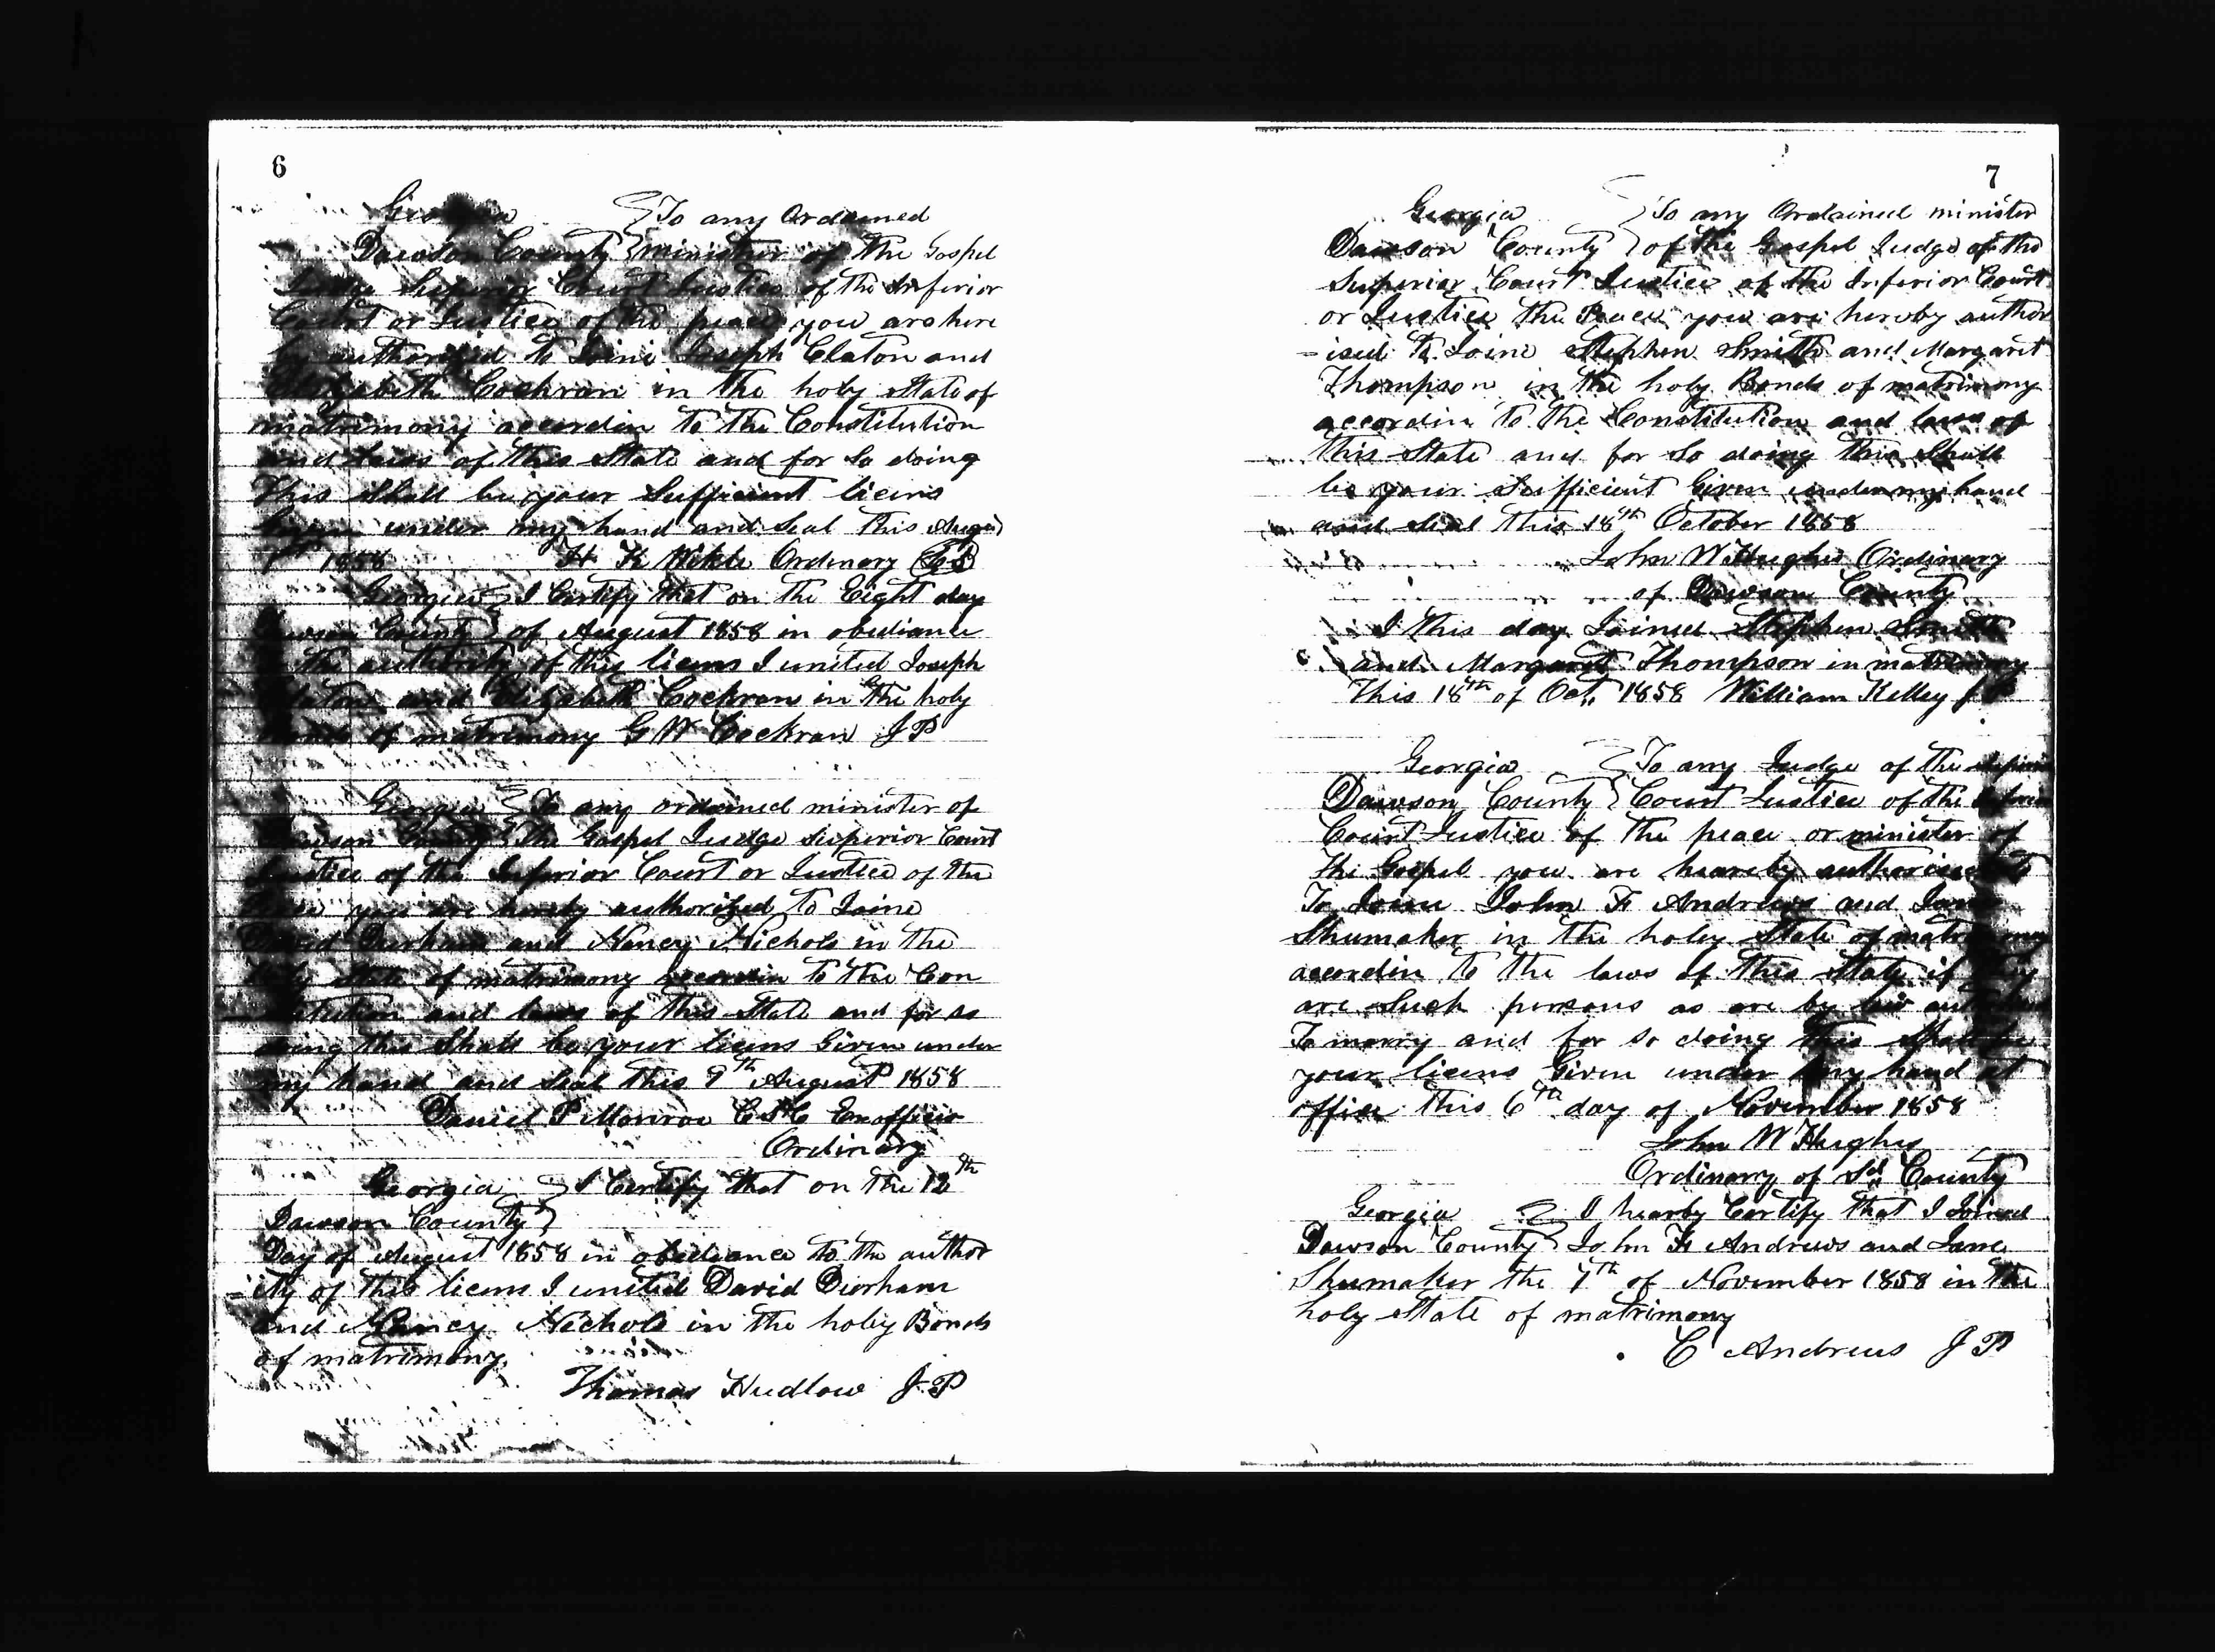 6
Georgia } To any Ordained
Dawson County } minister of the Gospel
Judge Superior Court Justice of the Inferior
Court or Justice of the peace you are here
by authorized to Joine Joseph Claton and
Elizabeth Cochran in the holy State of
matrimony accordin to the Constitution
and laws of this State and for so doing
This Shall be your Sufficient licens
Given under my hand and Seal this August
1st 1858 H K Wikle Ordinary
Georgia } I Certify that on the Eight day
Dawson County } of August 1858 in obediance
to the authority of this licens I united Joseph
Claton and Elizabeth Cockran in the holy
Bonds of matrimony G W Cockran J P
Georgia } To any ordained minister of
Dawson County } the Gospel Judge Superior Court
Justice of the Inferior Court or Justice of the
you are hereby authorized to Joine
David Durham and Nancy Nichols in the
holy State of matrimony accordin to the Con
stitution and laws of this State and for so
doing this Shall be your licens Given under
my hand and Seal this 9th August 1858
Daniel P Monroe C S C Exofficio
Ordinary
Georgia } I Certify that on the 12th
Dawson County }
Day of August 1858 in obediance to the author
-ity of this licens I united David Durham
and Nancy Nichols in the holy Bonds
of matrimony.
Thomas Hudlow J P
7
Georgia } To any Ordained minister
Dawson County } of the Gospel Judge of the
Superior Court Justice of the Inferior Court
or Justice the Peace you are hereby author
-ised to Joine Stephen Smith and Margaret
Thompson in the holy Bonds of matrimony
accordin to the Constitution and laws of
this State and for so doing this Shall
be your Sufficient Given under my hand
and Seal this 18th October 1858
John W Hughes Ordinary
of Dawson County
I this day Joined Stephen Smith
and Margaret Thompson in matrimony
This 18th of Oct. 1858 William Kelley J P
Georgia } To any Judge of the
Dawson County } Court Justice of the
Court Justice of the peace or minister of
the Gospel you are heareby
To Joine John F Andrews and Jane
Shumaker in the holy State of matrimony
accordin to the laws of this State if they
are Such persons as are by law
To marry and for so doing This Shall be
your licens Given under my hand at
office this 6th day of November 1858
John W Hughes
Ordinary of Sd County
Georgia } I hearby Certify that I Joined
Dawson County } John F Andrews and Jane
Shumaker the 7th of November 1858 in the
holy State of matrimony
C Andrews J P